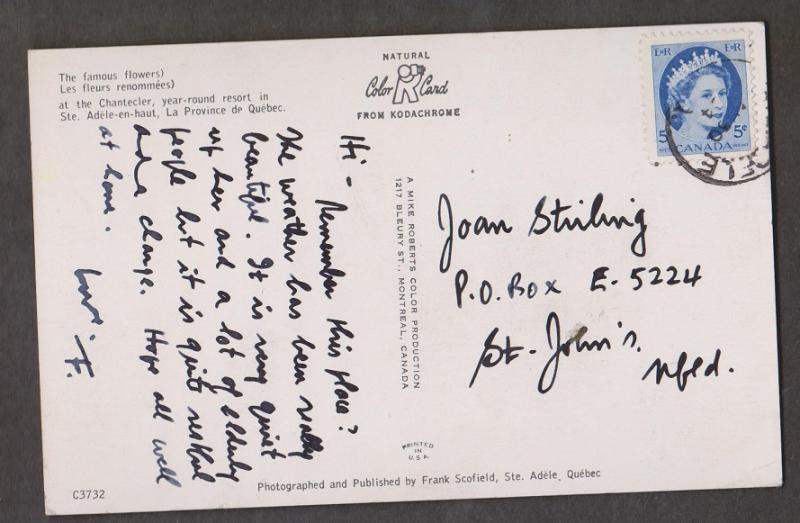 The famous flowers)
Les fleurs renommées)
at the Chantecler, year-round resort in
Ste. Adèle-en-haut, La Province de Québec.
NATURAL
Color Card
FROM KODACHROME
E R E R
5 5¢
CANADA
Hi - Remember this place?
The weather has been really
beautiful. It is very quiet
up here and a lot of elderly
people but it is quite restful
and a change. Hope all well
at home.
Love F.
A MIKE ROBERTS COLOR PRODUCTION
1217 BLEURY ST., MONTREAL, CANADA
Joan Stirling
P.O. Box E-5224
St. John's.
Nfld.
PRINTED
IN
U.S.A.
Photographed and Published by Frank Scofield, Ste. Adèle, Québec
C3732